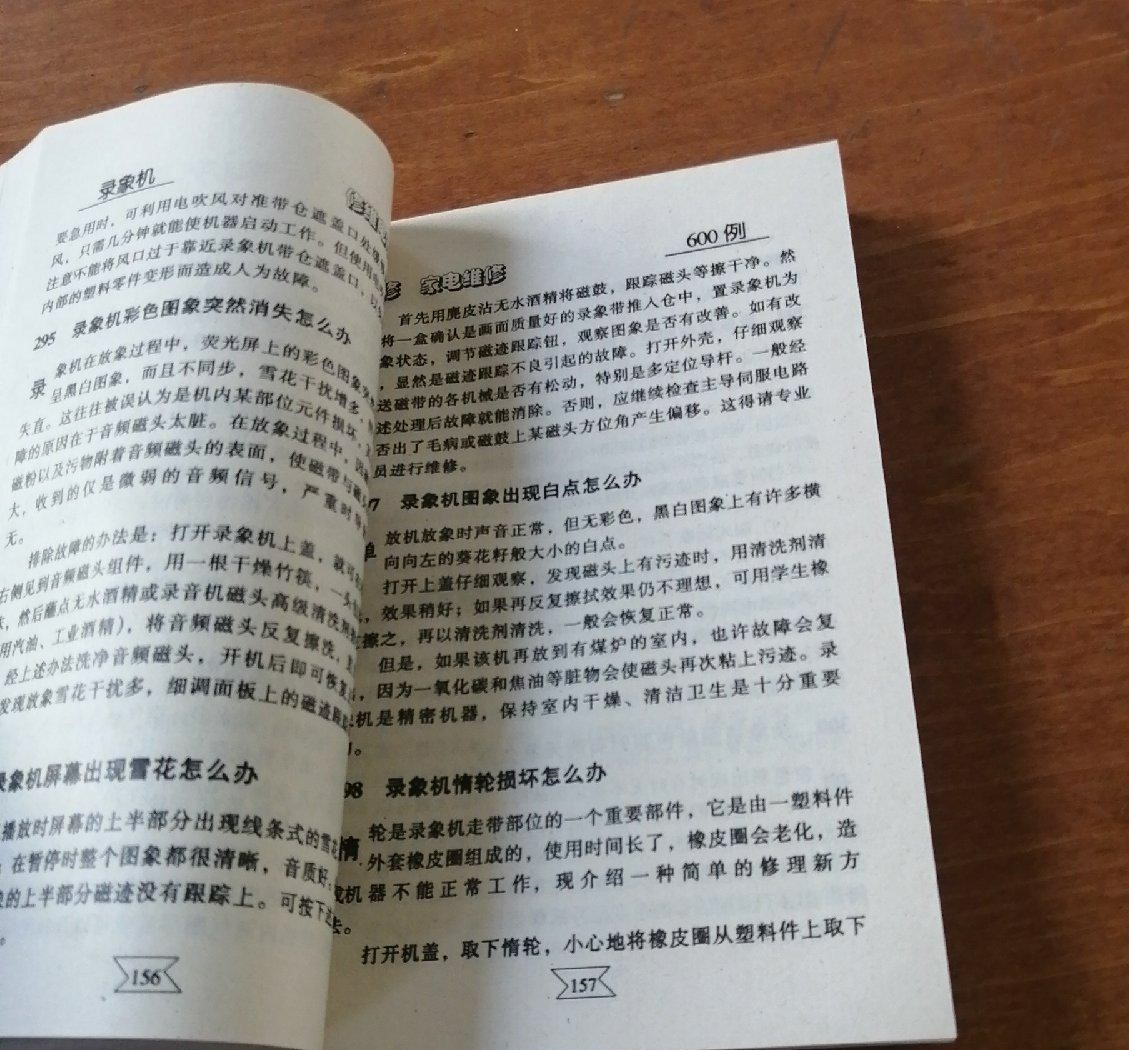 录象机
要急用时，可利用电吹风对准带仓遮盖口处
风，只需几分钟就能使机器启动工作。但使用
注意不能将风口过于靠近录象机带仓遮盖口，以
内部的塑料零件变形而造成人为故障。
295 录象机彩色图象突然消失怎么办
录 象机在放象过程中，荧光屏上的彩色图象
呈黑白图象，而且不同步，雪花干扰增多，
失真。这往往被误认为是机内某部位元件损坏，
障的原因在于音频磁头太脏。在放象过程中，因
磁粉以及污物附着音频磁头的表面，使磁带与磁
大，收到的仅是微弱的音频信号，严重时
无。
排除故障的办法是：打开录象机上盖，就可
右侧见到音频磁头组件，用一根干燥竹筷，一头
，然后蘸点无水酒精或录音机磁头高级清洗剂
用汽油、工业酒精)，将音频磁头反复擦洗，
经上述办法洗净音频磁头，开机后即可恢复
发现放象雪花干扰多，细调面板上的磁迹
录象机屏幕出现雪花怎么办
播放时屏幕的上半部分出现线条式的雪花
；在暂停时整个图象都很清晰，音质好。
的上半部分磁迹没有跟踪上。可按下
。
156
600 例
修 家电维修
首先用麂皮沾无水酒精将磁鼓，跟踪磁头等擦干净。然
将一盒确认是画面质量好的录象带推入仓中，置录象机为
象状态，调节磁迹跟踪钮，观察图象是否有改善。如有改
，显然是磁迹跟踪不良引起的故障。打开外壳，仔细观察
送磁带的各机械是否有松动，特别是多定位导杆。一般经
述处理后故障就能消除。否则，应继续检查主导伺服电路
否出了毛病或磁鼓上某磁头方位角产生偏移。这得请专业
员进行维修。
7 录象机图象出现白点怎么办
放机放象时声音正常，但无彩色，黑白图象上有许多横
向向左的葵花籽般大小的白点。
打开上盖仔细观察，发现磁头上有污迹时，用清洗剂清
，效果稍好；如果再反复擦拭效果仍不理想，可用学生橡
擦之，再以清洗剂清洗，一般会恢复正常。
但是，如果该机再放到有煤炉的室内，也许故障会复
，因为一氧化碳和焦油等脏物会使磁头再次粘上污迹。录
机是精密机器，保持室内干燥、清洁卫生是十分重要
。
98 录象机惰轮损坏怎么办
惰 轮是录象机走带部位的一个重要部件，它是由一塑料件
外套橡皮圈组成的，使用时间长了，橡皮圈会老化，造
成机器不能正常工作，现介绍一种简单的修理新方
法。
打开机盖，取下惰轮，小心地将橡皮圈从塑料件上取下
157